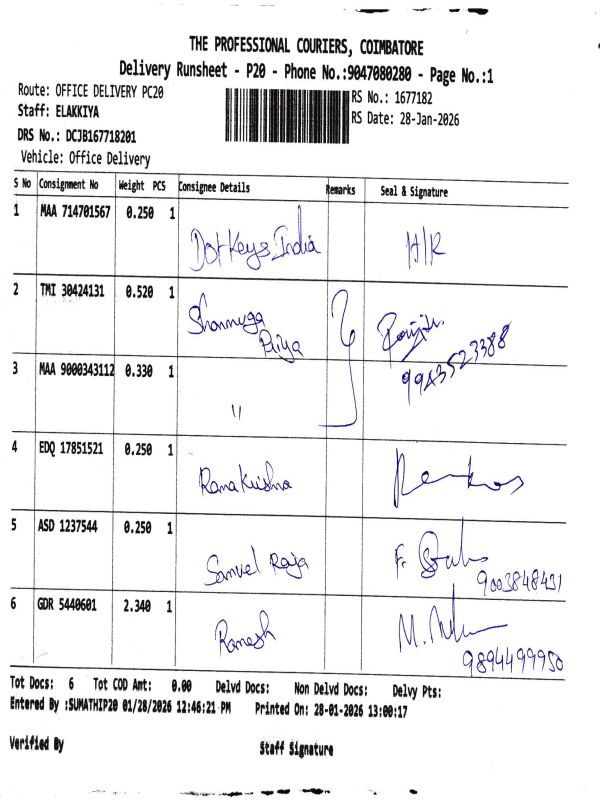 THE PROFESSIONAL COURIERS, COIMBATORE
Delivery Runsheet - P20 - Phone No.:9047080280 - Page No.:1
Route: OFFICE DELIVERY PC20
RS No.: 1677182
Staff: ELAKKIYA
RS Date: 28-Jan-2026
DRS No.: DCJB167718201
Vehicle: Office Delivery
S No Consignment No Weight PCS Consignee Details Remarks Seal & Signature
1 MAA 714701567 0.250 1
Dot Keys India H/R
2 TMI 30424131 0.520 1
Shanmuga
Priya
9943523388
3 MAA 9000343112 0.330 1
"
4 EDQ 17851521 0.250 1
Rama Krishna
5 ASD 1237544 0.250 1
Samuel Raja
9003848431
6 GDR 5440601 2.340 1
Ramesh
9894499950
Tot Docs: 6 Tot COD Amt: 0.00 Delvd Docs: Non Delvd Docs: Delvy Pts:
Entered By :SUMATHIP20 01/28/2026 12:46:21 PM Printed On: 28-01-2026 13:00:17
Verified By Staff Signature